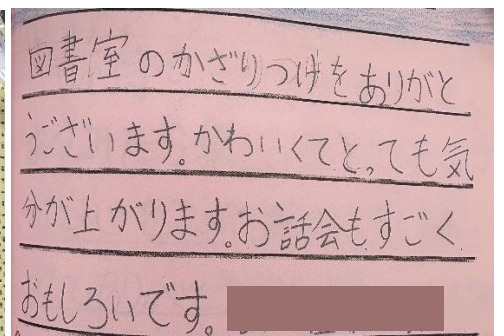 図書室のかざりつけをありがと
うございます。かわいくてとっても気
分が上がります。お話会もすごく
おもしろいです。